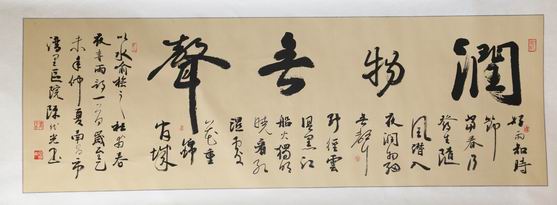 潤物無聲
好雨知時
節
當春乃
發生隨
風潛入
夜潤物細
無聲
野徑雲
俱黑江
船火獨明
曉看紅
濕處
花重錦
官城
杜甫春
夜喜雨詩一首
未年仲夏南昌市
灣里區院陳